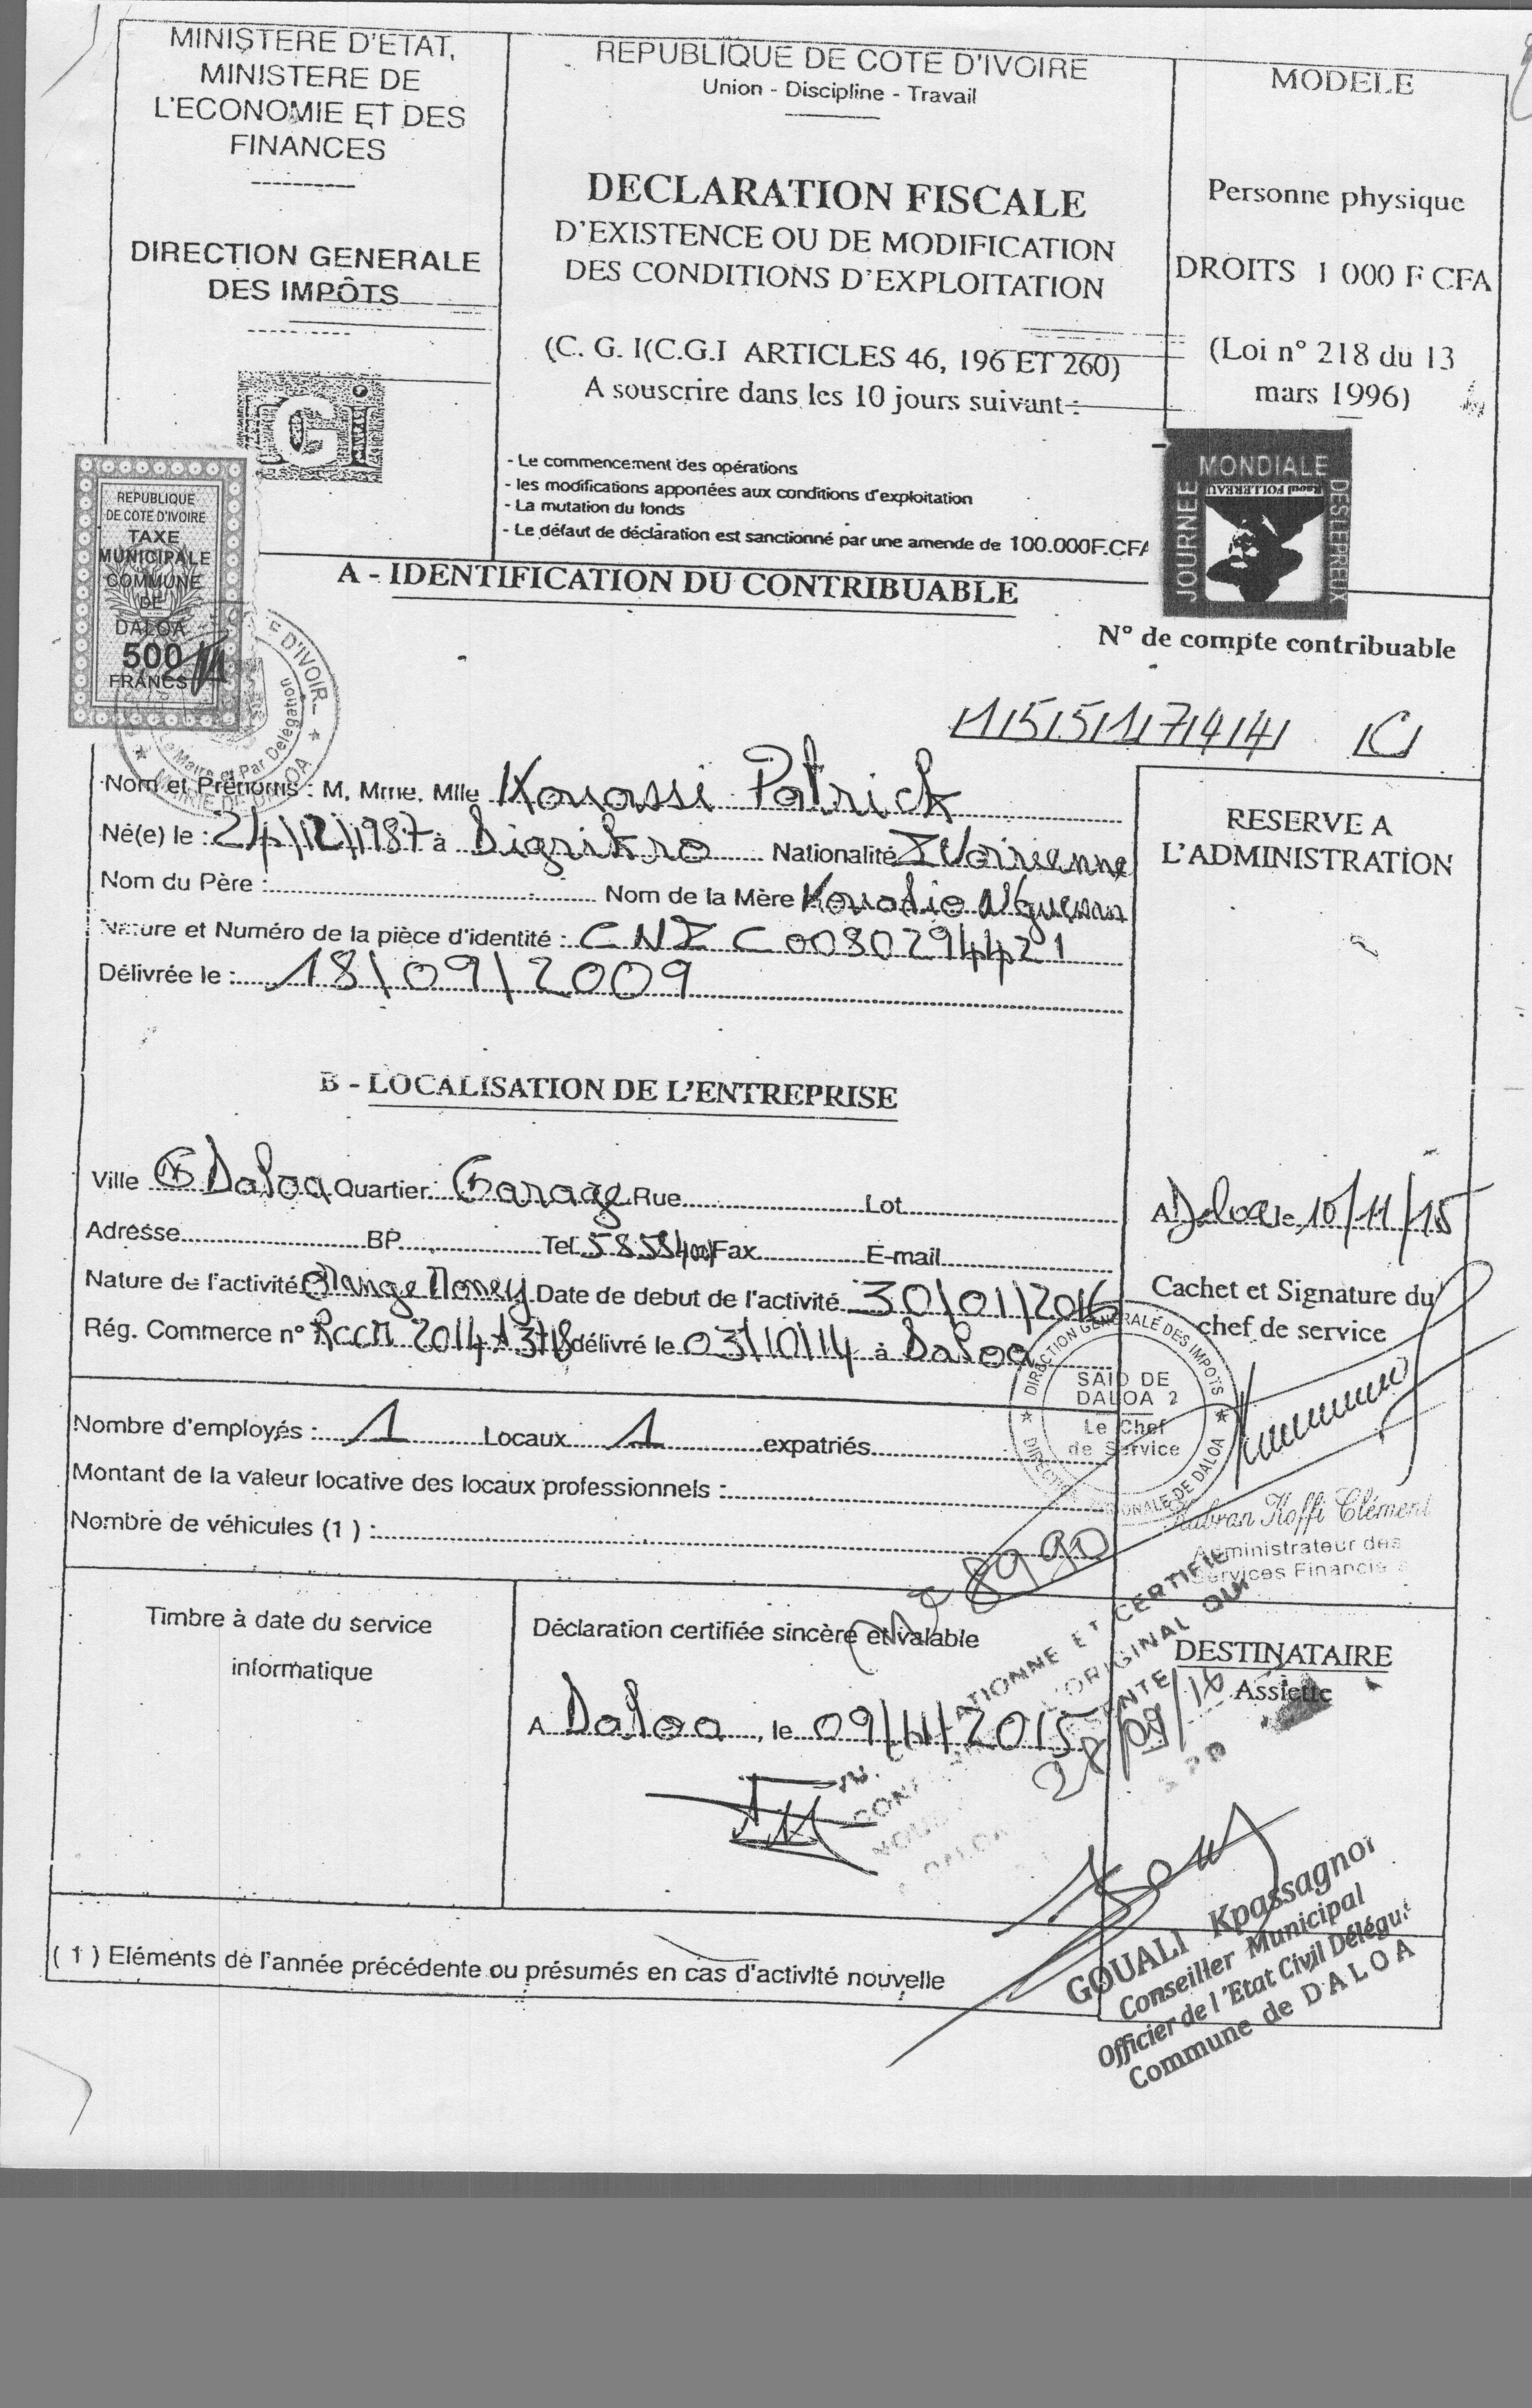 MINISTERE D'ETAT,
MINISTERE DE
L'ECONOMIE ET DES
FINANCES
DIRECTION GENERALE
DES IMPÔTS
REPUBLIQUE DE COTE D'IVOIRE
Union - Discipline - Travail
DECLARATION FISCALE
D'EXISTENCE OU DE MODIFICATION
DES CONDITIONS D'EXPLOITATION
(C. G. I(C.G.I ARTICLES 46, 196 ET 260)
A souscrire dans les 10 jours suivant :
- Le commencement des opérations
- les modifications apportées aux conditions d'exploitation
- La mutation du fonds
- Le défaut de déclaration est sanctionné par une amende de 100.000F.CFA
MODELE
Personne physique
DROITS 1 000 F CFA
(Loi n° 218 du 13
mars 1996)
REPUBLIQUE
DE COTE D'IVOIRE
TAXE
MUNICIPALE
COMMUNE
DE
DALOA
500
FRANCS
JOURNEE MONDIALE DES LEPREUX
Raoul FOLLEREAU
A - IDENTIFICATION DU CONTRIBUABLE
N° de compte contribuable
1155117414 C
Nom et Prénoms : M, Mme, Mlle Kouassi Patrick
Né(e) le : 24/12/1987 à Digrikro Nationalité Ivoirienne
Nom du Père : Nom de la Mère Kouadio N'guessan
Nature et Numéro de la pièce d'identité : CNI C0080294421
Délivrée le : 18/09/2009
RESERVE A
L'ADMINISTRATION
B - LOCALISATION DE L'ENTREPRISE
Ville Daloa Quartier Garage Rue Lot
Adresse BP Tel Fax E-mail
Nature de l'activité Orange Money Date de debut de l'activité 30/01/2016
Rég. Commerce n° RCCM 2014 A 3718 délivré le 03/10/14 à Daloa
A Daloa le 10/11/15
Cachet et Signature du
chef de service
DIRECTION GENERALE DES IMPOTS
SAID DE
DALOA 2
Le Chef
de Service
Kabran Koffi Clément
Administrateur des
Services Financiers
Nombre d'employés : 1 Locaux 1 expatriés
Montant de la valeur locative des locaux professionnels :
Nombre de véhicules (1 ) :
8990
Timbre à date du service
informatique
Déclaration certifiée sincère et valable
A Daloa, le 09/11/2015
DESTINATAIRE
Assiette
28/09/16
GOUALI Kpassagnoi
Conseiller Municipal
Officier de l'Etat Civil Délégué
Commune de DALOA
( 1 ) Eléments de l'année précédente ou présumés en cas d'activité nouvelle